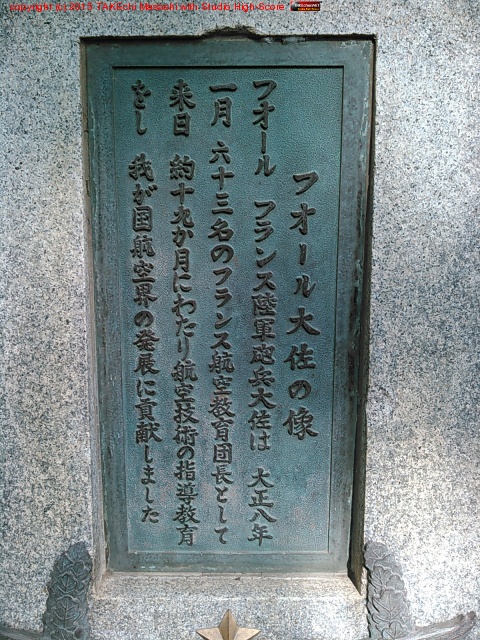 copyright (c) 2013 TAKEchi Masashi with Studio High Score
フオール大佐の像
フオール　フランス陸軍砲兵大佐は　大正八年
一月　六十三名のフランス航空教育団長として
来日　約十九か月にわたり航空技術の指導教育
をし　我が国航空界の発展に貢献しました